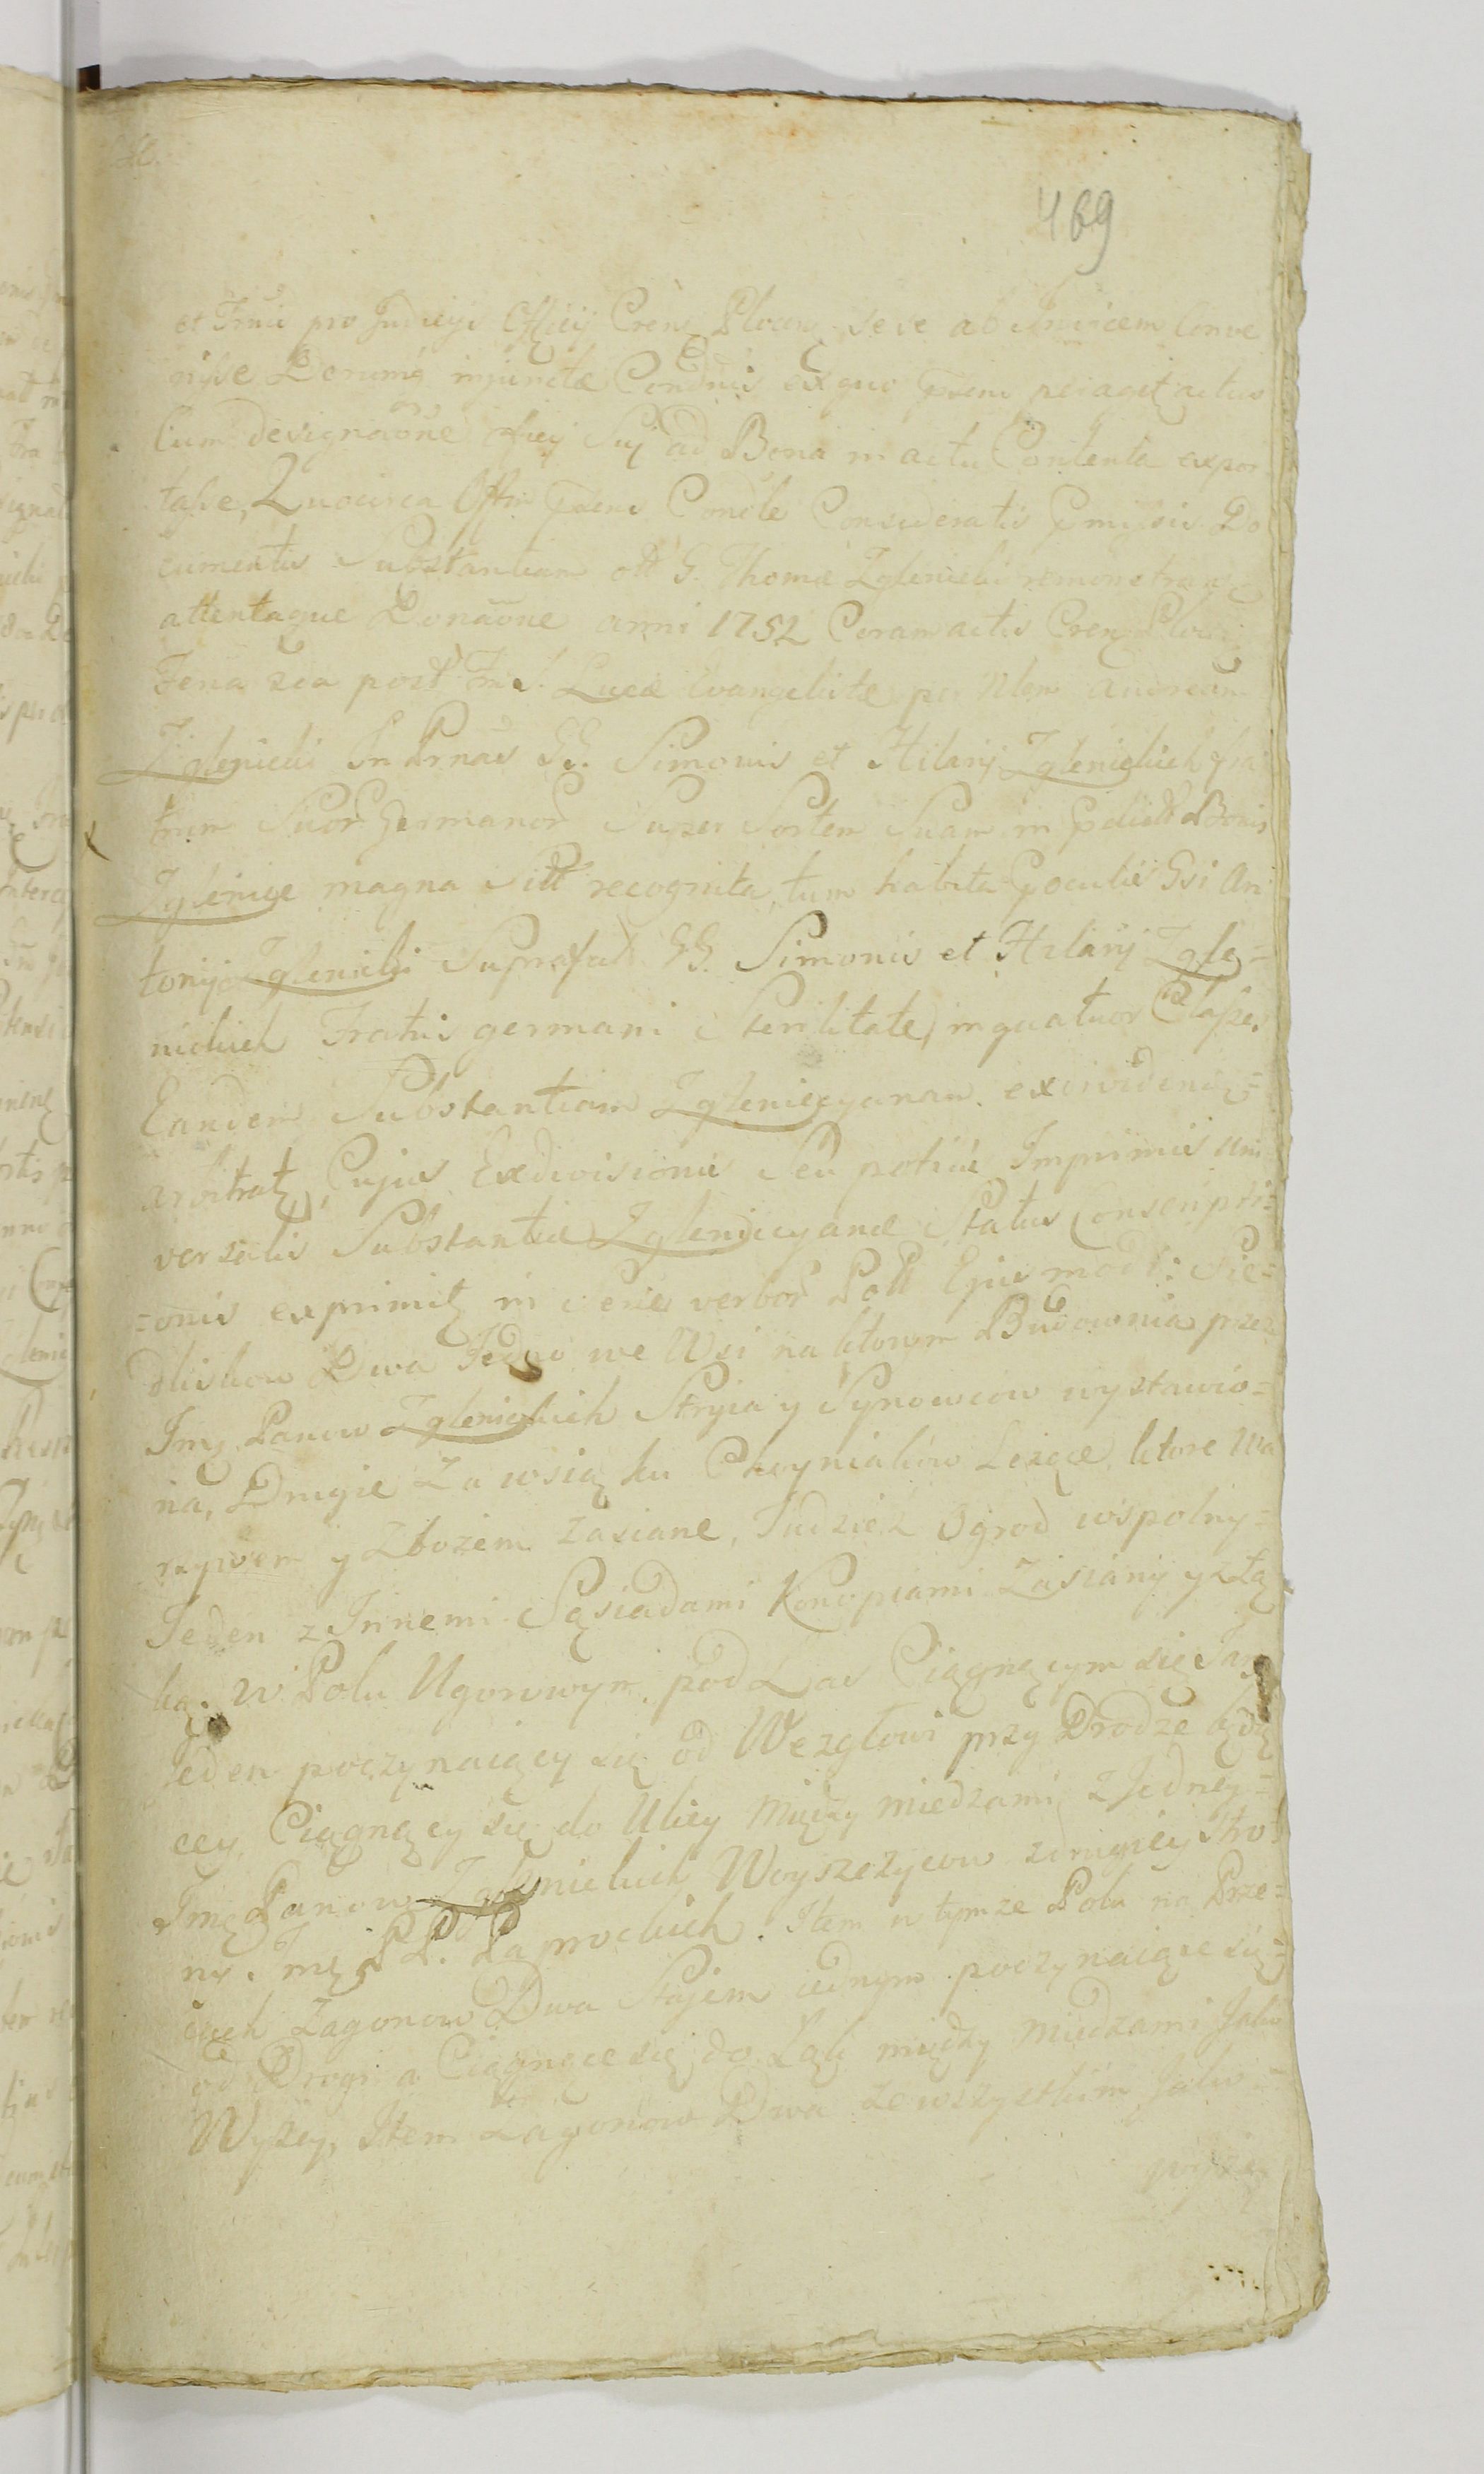 469
et pro Judicys Officij Crens Plocens sese ab invicem Conve
nisse Dorumq injunctæ Condnis ex quo pñem peraget actus
Cum designaone Officij Sui ad Bona in actu Contenta expor
tasse, Quocirca Offm pñens Condle Consideratis pmissis Do
cumentis Substantiam olt G. Thomæ Zglenicki remonstran
attentaque Donaone anni 1752 Coram actis Cren Plocen
Feria 2da post Fm S. Lucæ Evangelistæ per Nlem Andream
Zglenicki In Prnas GG. Simonis et Hilarij Zglenickich fra
trum Suor Germanor Super Sortem Suam in pdictis Bonis
Zglenice magna Sitt recognita, tum habita poculis Gsi An
tonij Zglenicki Suprafad GG. Simonis et Hilarij Zgle=
nickich Fratris germani Sterilitate, in quatuor Classes
Eandem Substantiam Zgleniccyanam exdividendam
arbitratz, Cujus Exdivisionis Seu potius Imprimis uni
versalis Substantiæ Zglenicicyanæ Status Conscripti=
=onis exprimitz in Serie verbor Poll Ejusmodi: Sie=
dliskow Dwa Jedno we Wsi na ktorym Budownia przez
Jmę Panow Zglenickich Stryia y Synowcow wystawio=
na, Drugie Za wsią ku Chcyniakow Leżące, ktore Wa
rzywem y Zbożem zasiane, Tudzież Ogrod wspolny=
Jeden z Innemi Sąsiadami Konopiami Zasiany y z Łą
ką. W Polu Ugorowym pod Las Ciągnącym się Łan
Jeden poczynaiący się od Wezgłowi przy Drodze będą
cey, Ciągnący się do Ulicy Między miedzami z Jedney=
Jmę Panow Zglenickich Woyszczycow z drugiey stro
ny Jmę PP. Paprockich. Item w tymze Polu na Prze=
ciech Zagonow Dwa Stajem iednym poczynaiące się=
od Drogi a Ciągnące się do Łąk między miedzami Jako
Wyżey, Item Zagonow Dwa ze wszystkim Jako=
wyżey